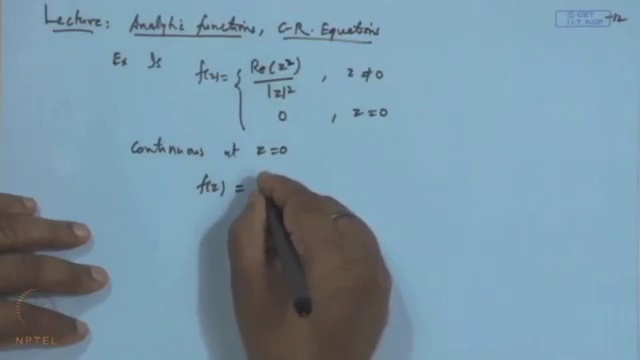 Lecture: Analytic functions, C-R. Equations
© CET
I.I.T. KGP
Ex Is f(z) = { Re(z²) / |z|² , z ≠ 0
0 , z = 0
Continuous at z = 0
f(z) =
NPTEL